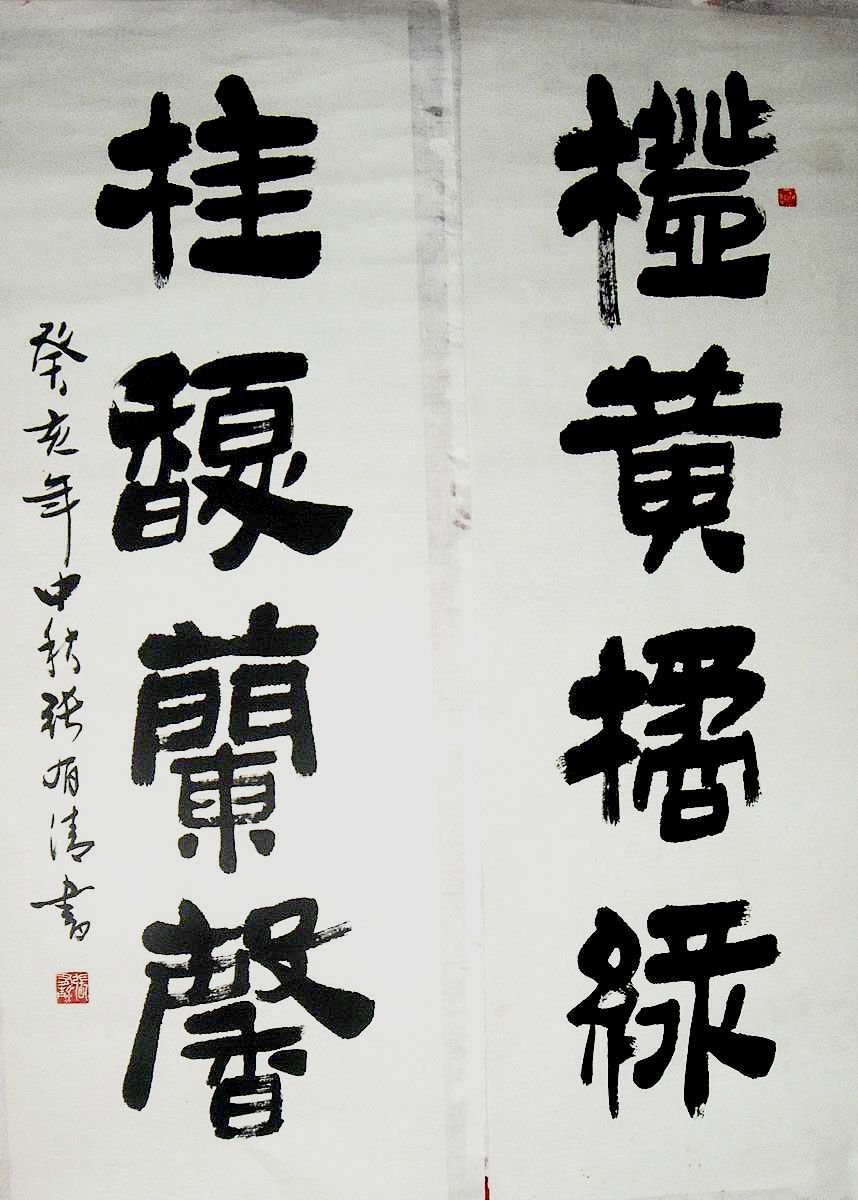 橙黄橘綠
桂馥蘭馨
癸亥年中秋張有清書